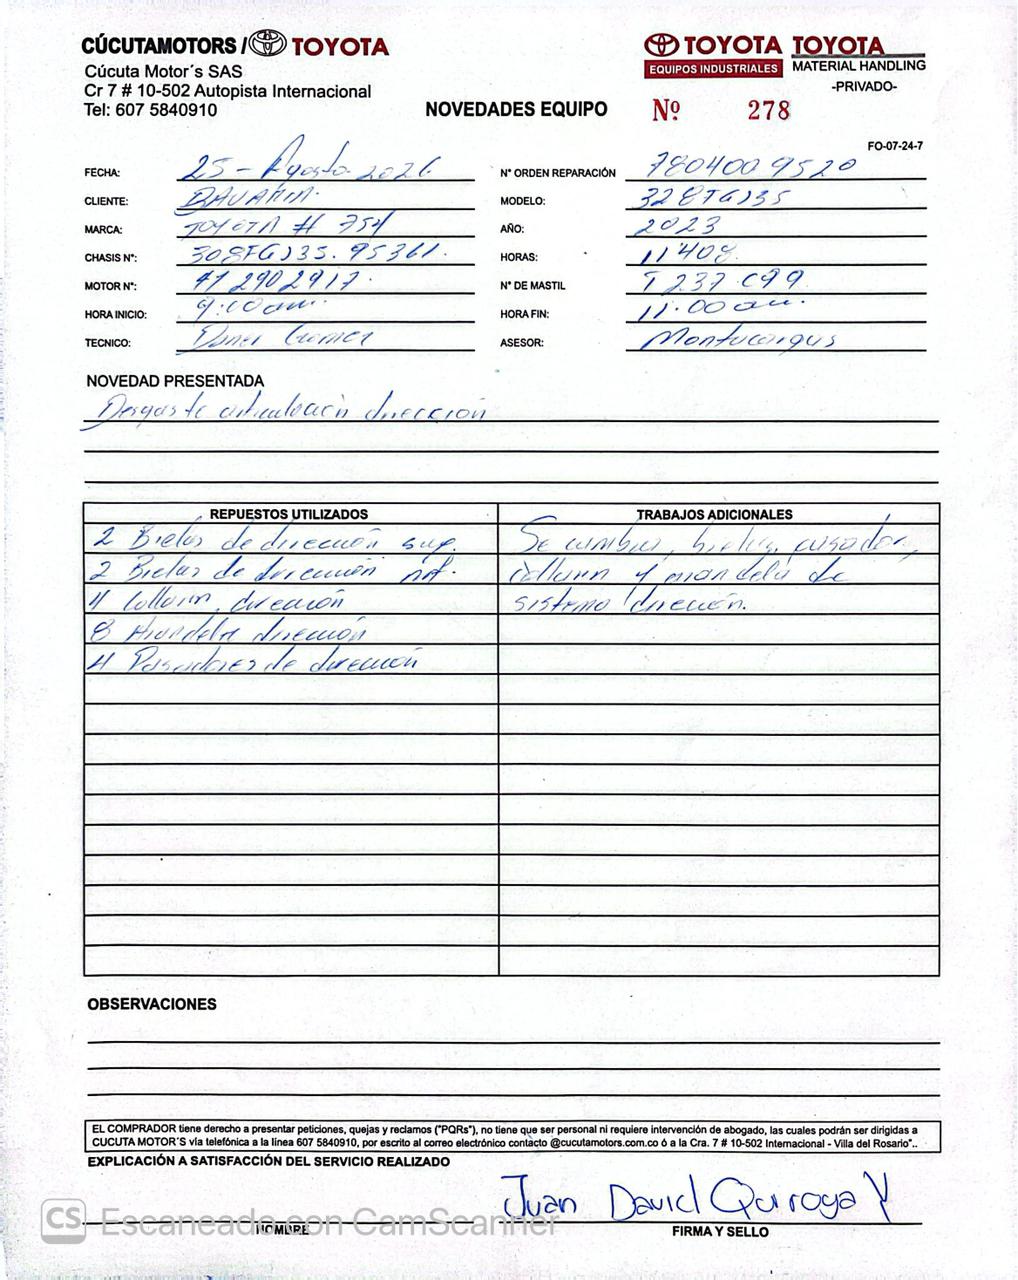 CÚCUTAMOTORS / TOYOTA
Cúcuta Motor´s SAS
Cr 7 # 10-502 Autopista Internacional
Tel: 607 5840910
TOYOTA EQUIPOS INDUSTRIALES
TOYOTA MATERIAL HANDLING
-PRIVADO-
NOVEDADES EQUIPO
Nº 278
FO-07-24-7
FECHA: 25 - Agosto 2026
N° ORDEN REPARACIÓN 7804009520
CLIENTE: BAVARIA
MODELO: 328FGJ35
MARCA: TOYOTA # 754
AÑO: 2023
CHASIS N°: 308FGJ35. 95361.
HORAS: 11408
MOTOR N°: 412902917.
N° DE MASTIL
HORA INICIO: 9:00 am.
HORA FIN: 11:00 am.
TECNICO:
ASESOR: Montacargas
NOVEDAD PRESENTADA
Desgaste articulación dirección
REPUESTOS UTILIZADOS
2 Bielas de dirección sup.
2 Bielas de dirección inf.
4 dirección
8 Arandela dirección
4 Pasadores de dirección
TRABAJOS ADICIONALES
Se cambia, bielas, pasador,
y arandela de
sistema dirección.
OBSERVACIONES
EL COMPRADOR tiene derecho a presentar peticiones, quejas y reclamos ("PQRs"), no tiene que ser personal ni requiere intervención de abogado, las cuales podrán ser dirigidas a
CUCUTA MOTOR´S vía telefónica a la línea 607 5840910, por escrito al correo electrónico contacto @cucutamotors.com.co ó a la Cra. 7 # 10-502 Internacional - Villa del Rosario"..
EXPLICACIÓN A SATISFACCIÓN DEL SERVICIO REALIZADO
Juan David Quiroga V
NOMBRE
FIRMA Y SELLO
CS Escaneado con CamScanner